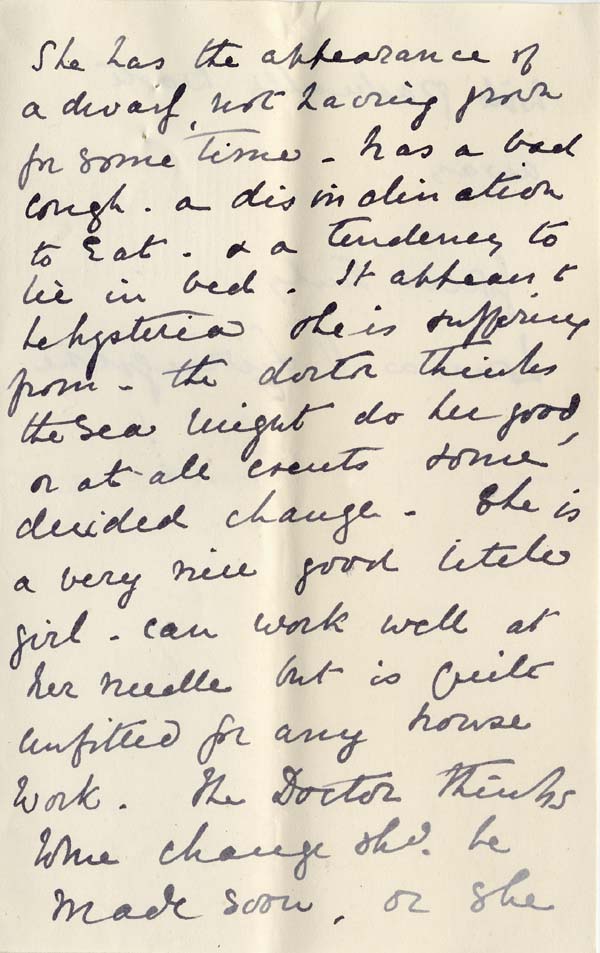 She has the appearance of
a dwarf, not having grown
for some time - has a bad
cough. a disinclination
to Eat. & a tendency to
lie in bed. It appears to
be hysteria she is suffering
from - the doctor thinks
the sea might do her good,
or at all events some
decided change - She is
a very nice good little
girl - can work well at
her needle but is quite
unfitted for any house
work. The Doctor thinks
some change shd. be
made soon, or she